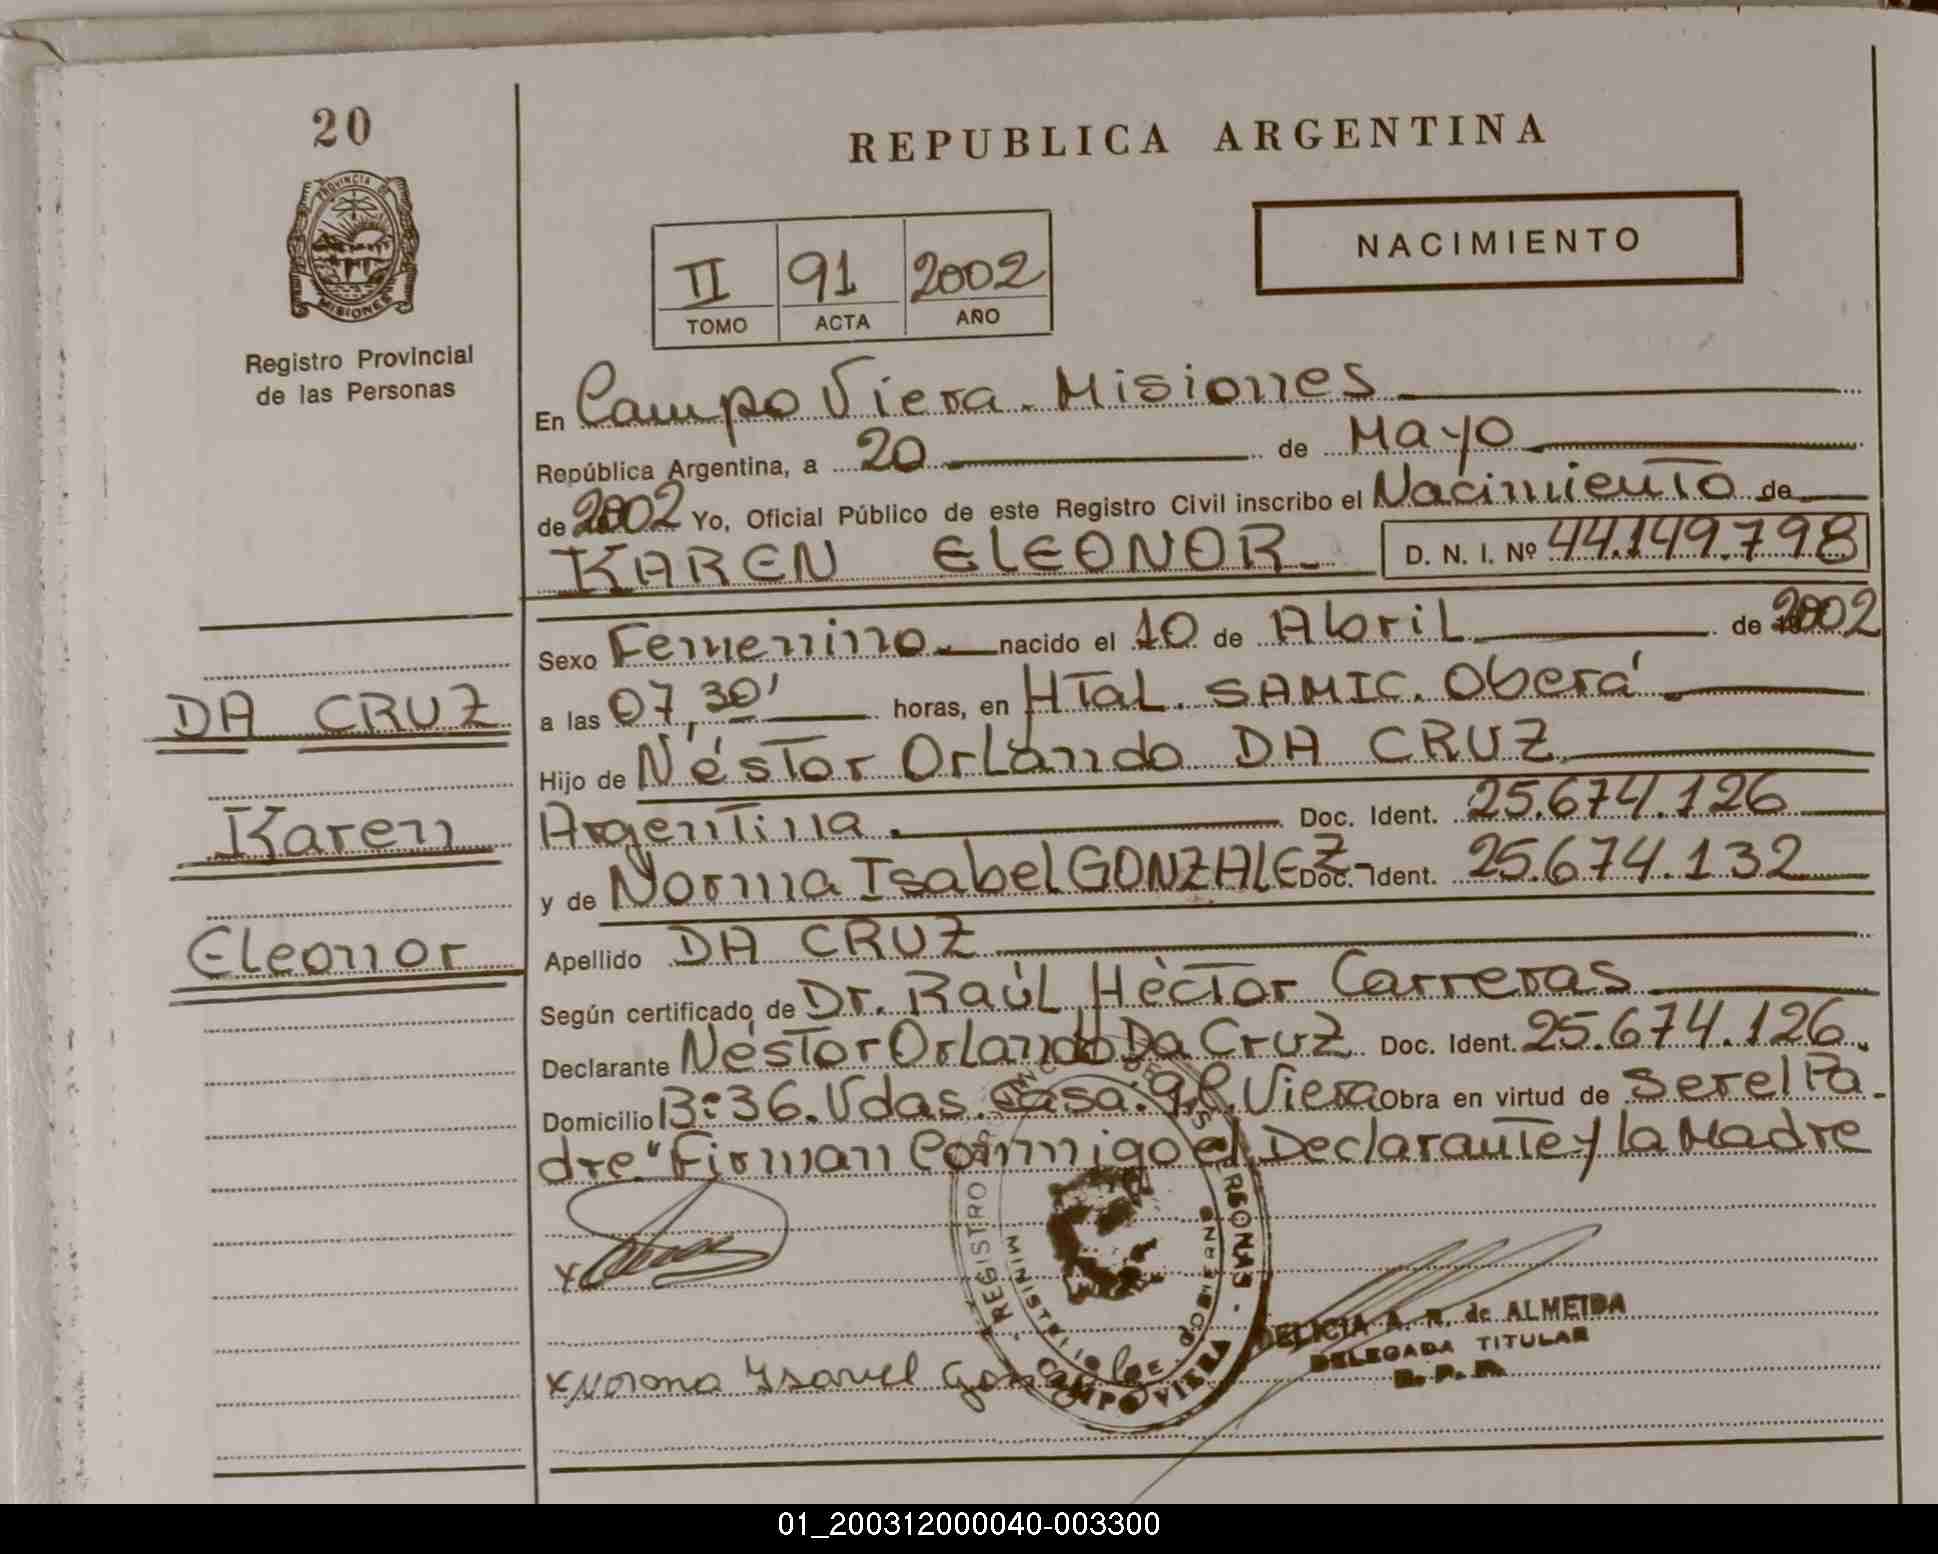 20
PROVINCIA DE
MISIONES
Registro Provincial
de las Personas
DA CRUZ
Karen
Eleonor
REPUBLICA ARGENTINA
NACIMIENTO
II 91 2002
TOMO ACTA AÑO
En Campo Viera. Misiones
República Argentina, a 20 de Mayo
de 2002 Yo, Oficial Público de este Registro Civil inscribo el Nacimiento de
KAREN ELEONOR. D. N. I. Nº 44.149.798
Sexo Femenino. nacido el 10 de Abril de 2002
a las 07,30' horas, en HTal. SAMIC. Oberá.
Hijo de Néstor Orlando DA CRUZ
Argentina. Doc. Ident. 25.674.126
y de Norma Isabel GONZALEZ Doc. Ident. 25.674.132
Apellido DA CRUZ
Según certificado de Dr. Raúl Hèctor Carreras
Declarante Néstor Orlando Da Cruz Doc. Ident. 25.674.126.
Domicilio Bº36.Vdas.Casa.9 C. Viera Obra en virtud de Ser el Pa-
dre" Firman Conmigo el Declarante y la Madre
X
REGISTRO DE LAS PERSONAS
MINISTERIO DE
CAMPO VIERA
DELICIA A. R. de ALMEIDA
DELEGADA TITULAR
R. P. P.
X Norma Ysavel
01_200312000040-003300